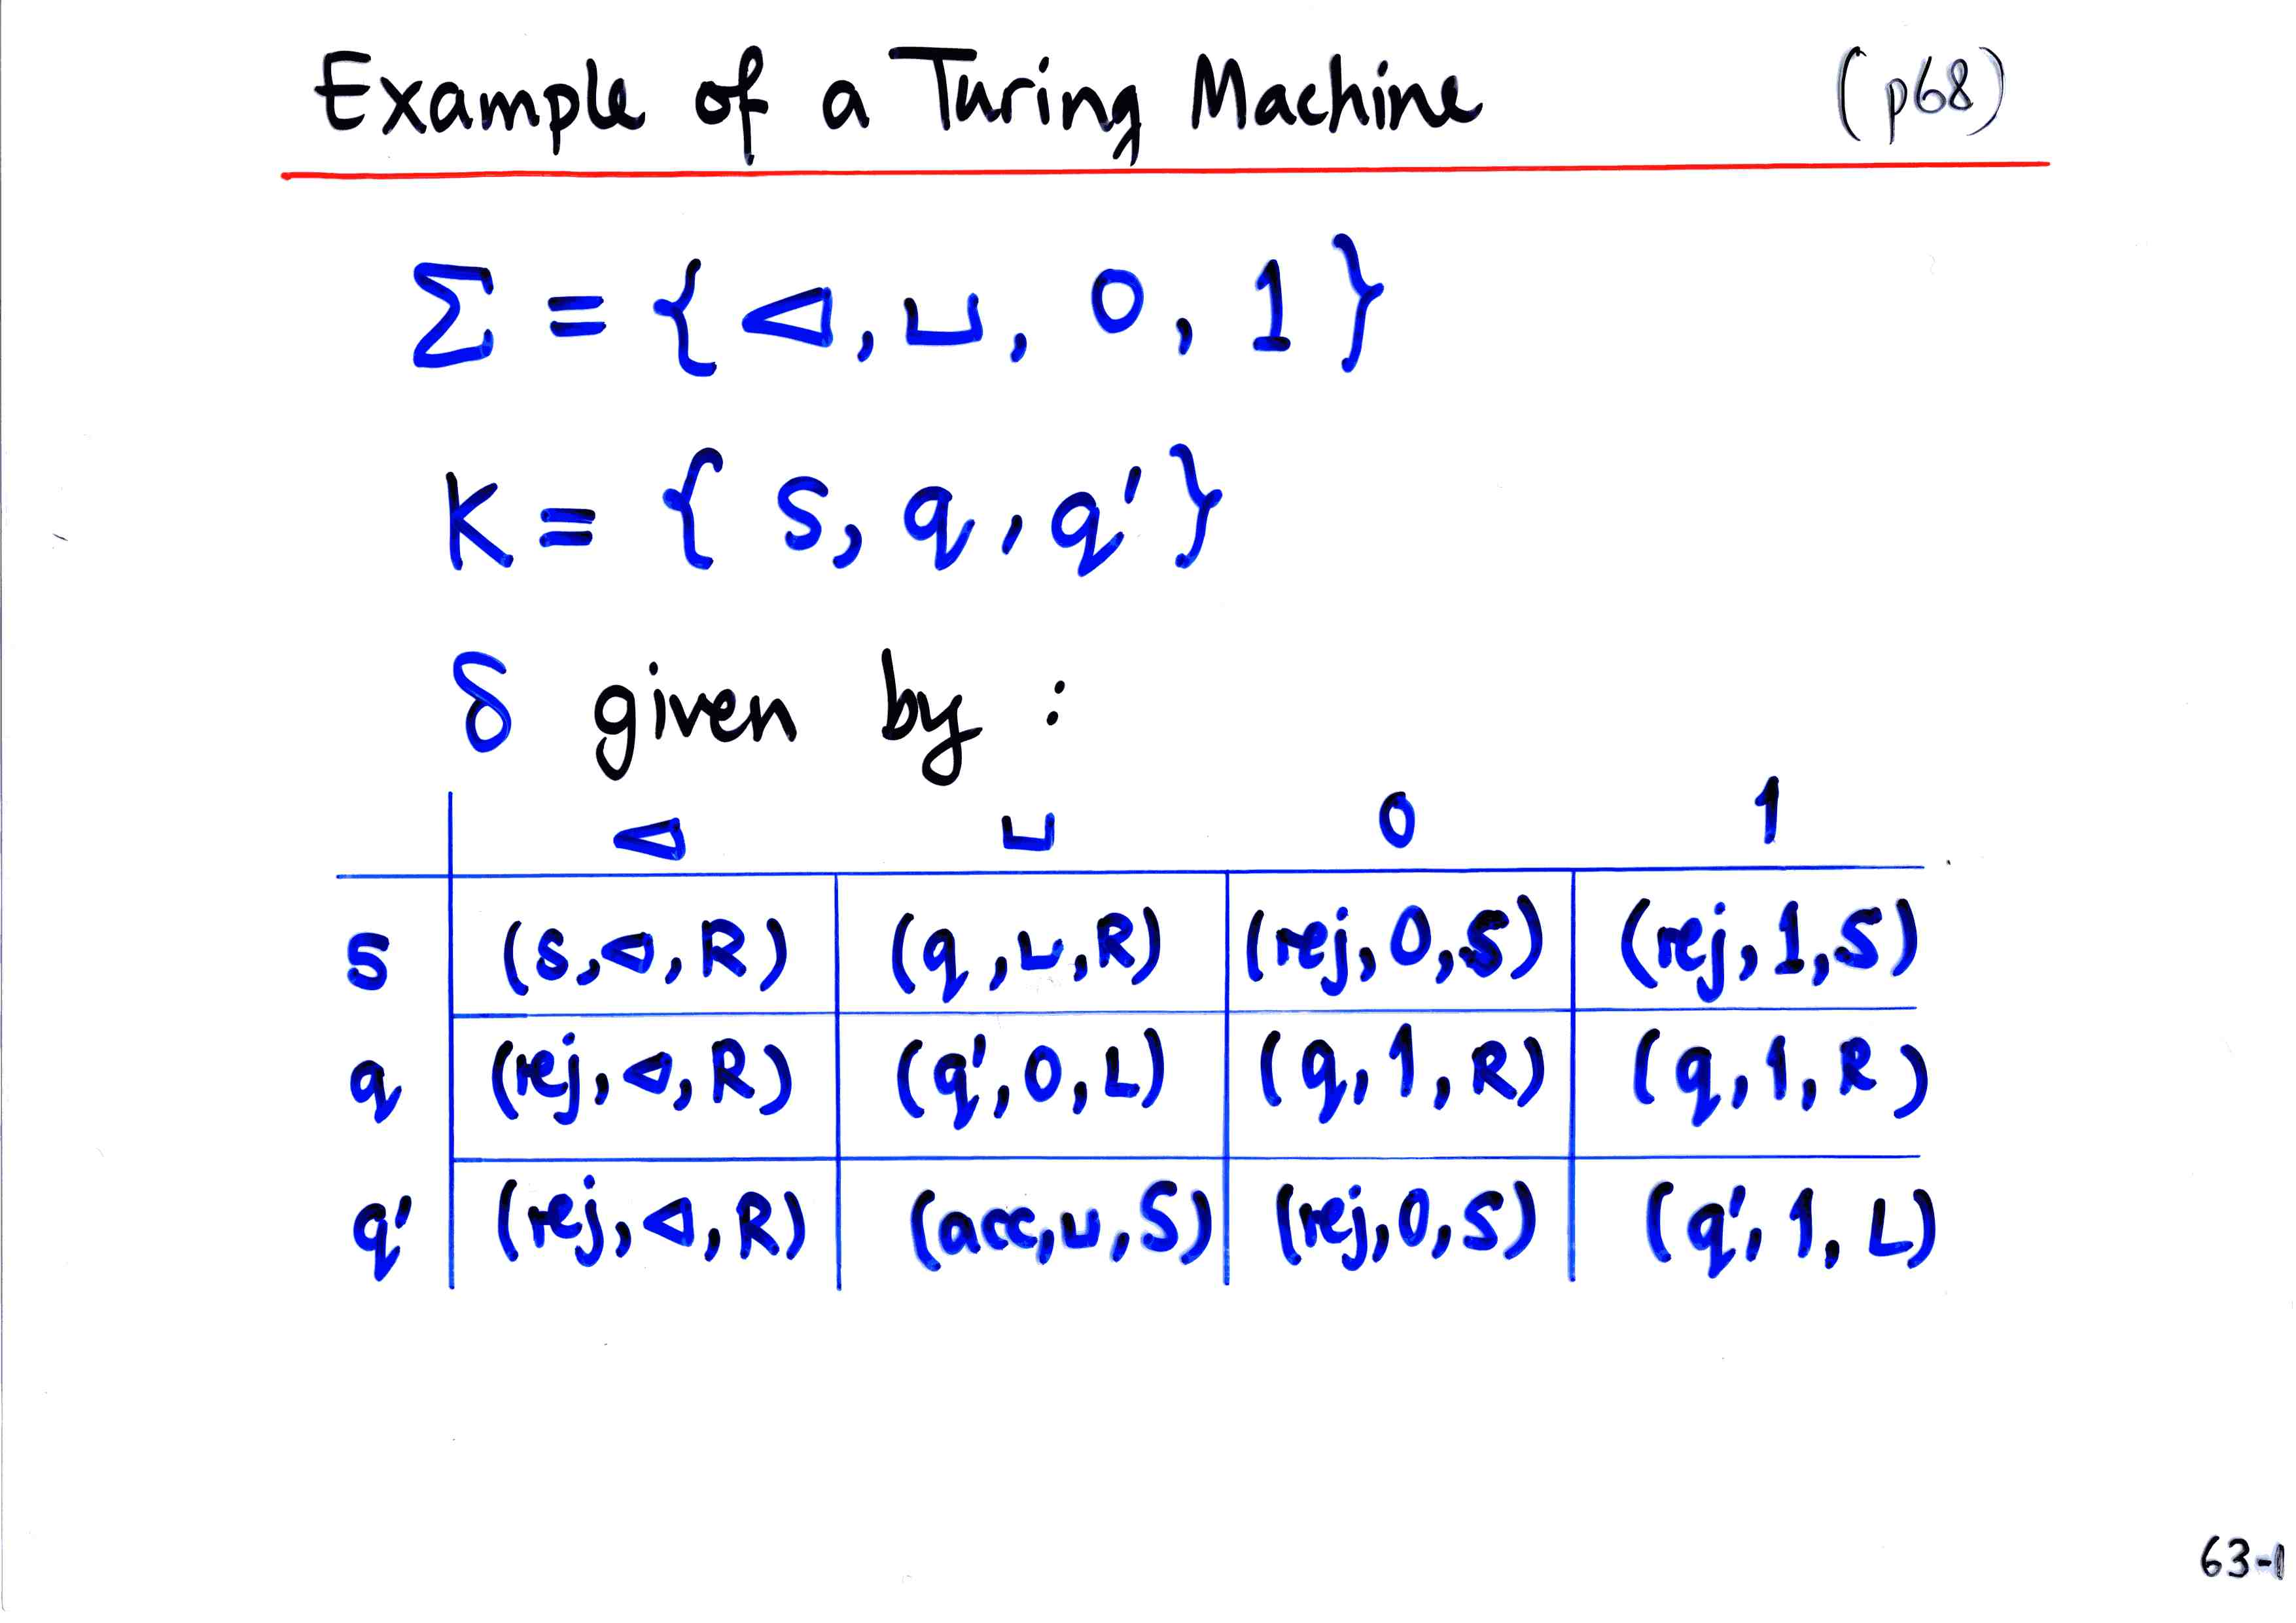 Example of a Turing Machine (p68)
Σ = { ⊲, ⊔, 0, 1 }
K = { s, q, q' }
δ given by :
⊲ ⊔ 0 1
s (s,⊲,R) (q,⊔,R) (rej,0,S) (rej,1,S)
q (rej,⊲,R) (q',0,L) (q,1,R) (q,1,R)
q' (rej,⊲,R) (acc,⊔,S) (rej,0,S) (q',1,L)
63-1